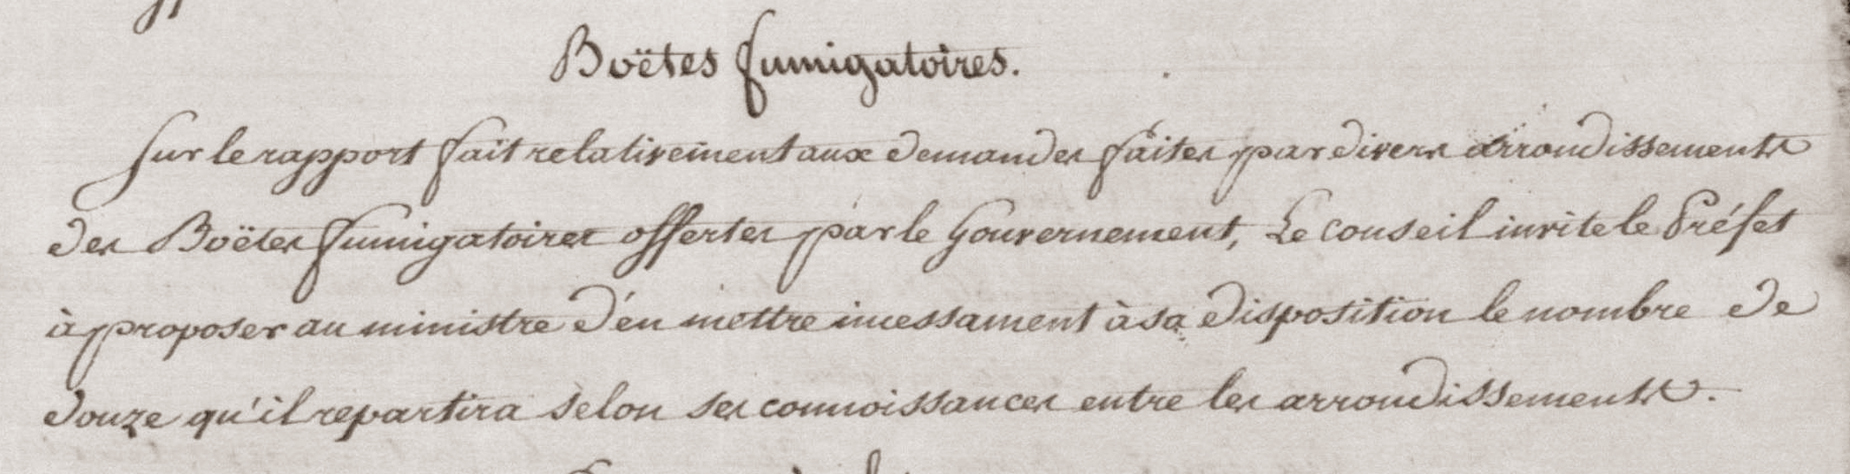 Boëtes fumigatoires.
Sur le rapport fait relativement aux demandes faites par divers arrondissements
des Boëtes fumigatoires offertes par le Gouvernement, Le conseil invite le Préfet
à proposer au ministre d'en mettre incessament à sa disposition le nombre de
douze qu'il repartira selon ses connoissances entre les arrondissements.